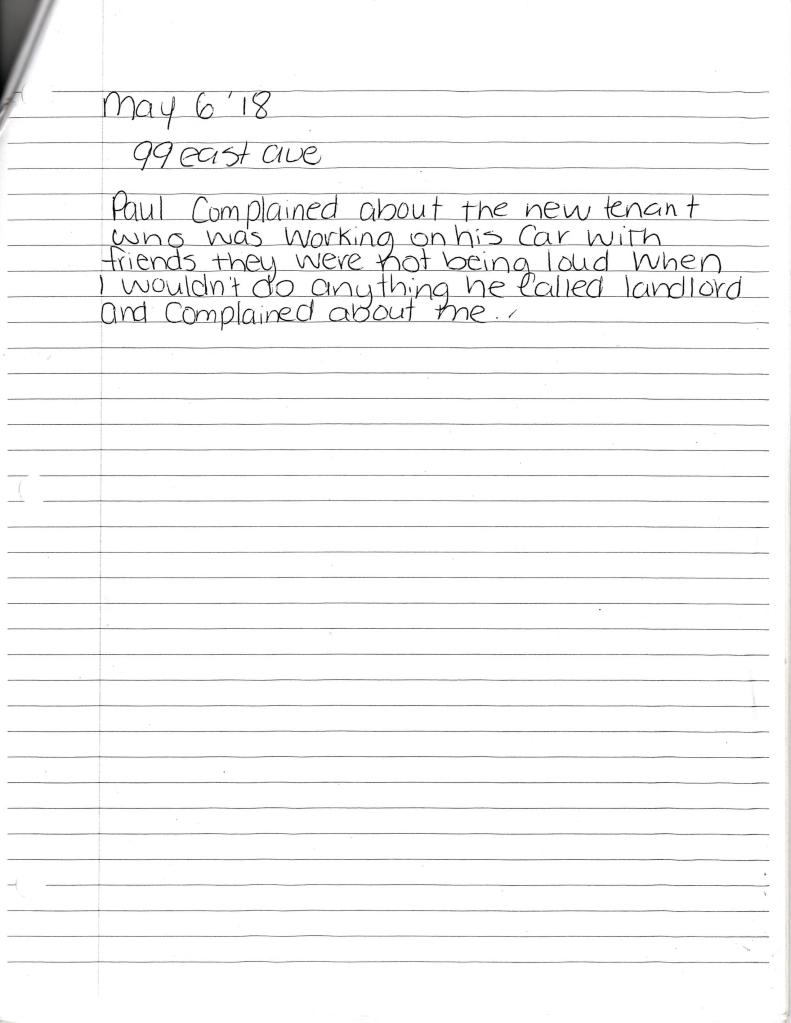 May 6 '18
99 east ave
Paul Complained about the new tenant
who was Working on his Car with
friends they were not being loud when
I wouldn't do anything he Called landlord
and Complained about me.